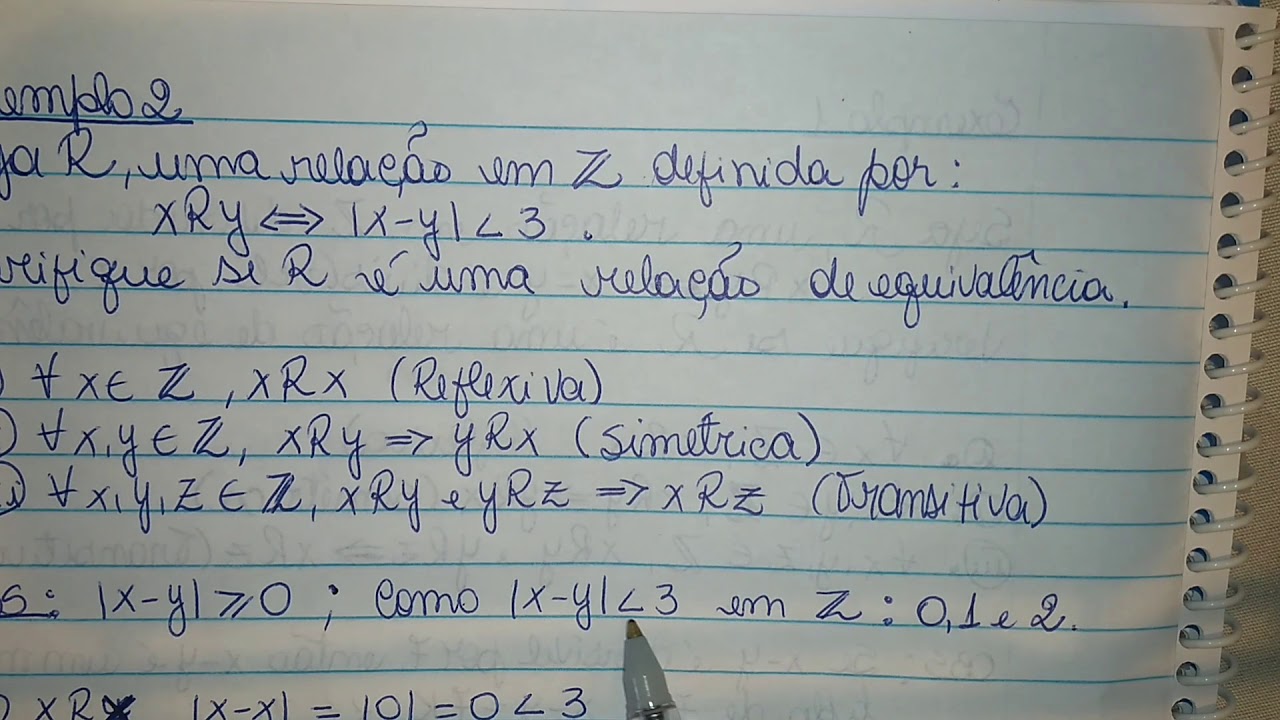 emplo 2
ja R, uma relação em ℤ definida por:
xRy ⇔ |x-y| < 3 .
rifique se R é uma relação de equivalência.
) ∀ x ∈ ℤ , xRx (Reflexiva)
) ∀ x, y ∈ ℤ, xRy ⇒ yRx (simetrica)
) ∀ x, y, z ∈ ℤ, xRy e yRz ⇒ xRz (Transitiva)
s: |x-y| ⩾ 0 ; como |x-y| < 3 em ℤ : 0, 1 e 2.
) xRx |x-x| = |0| = 0 < 3